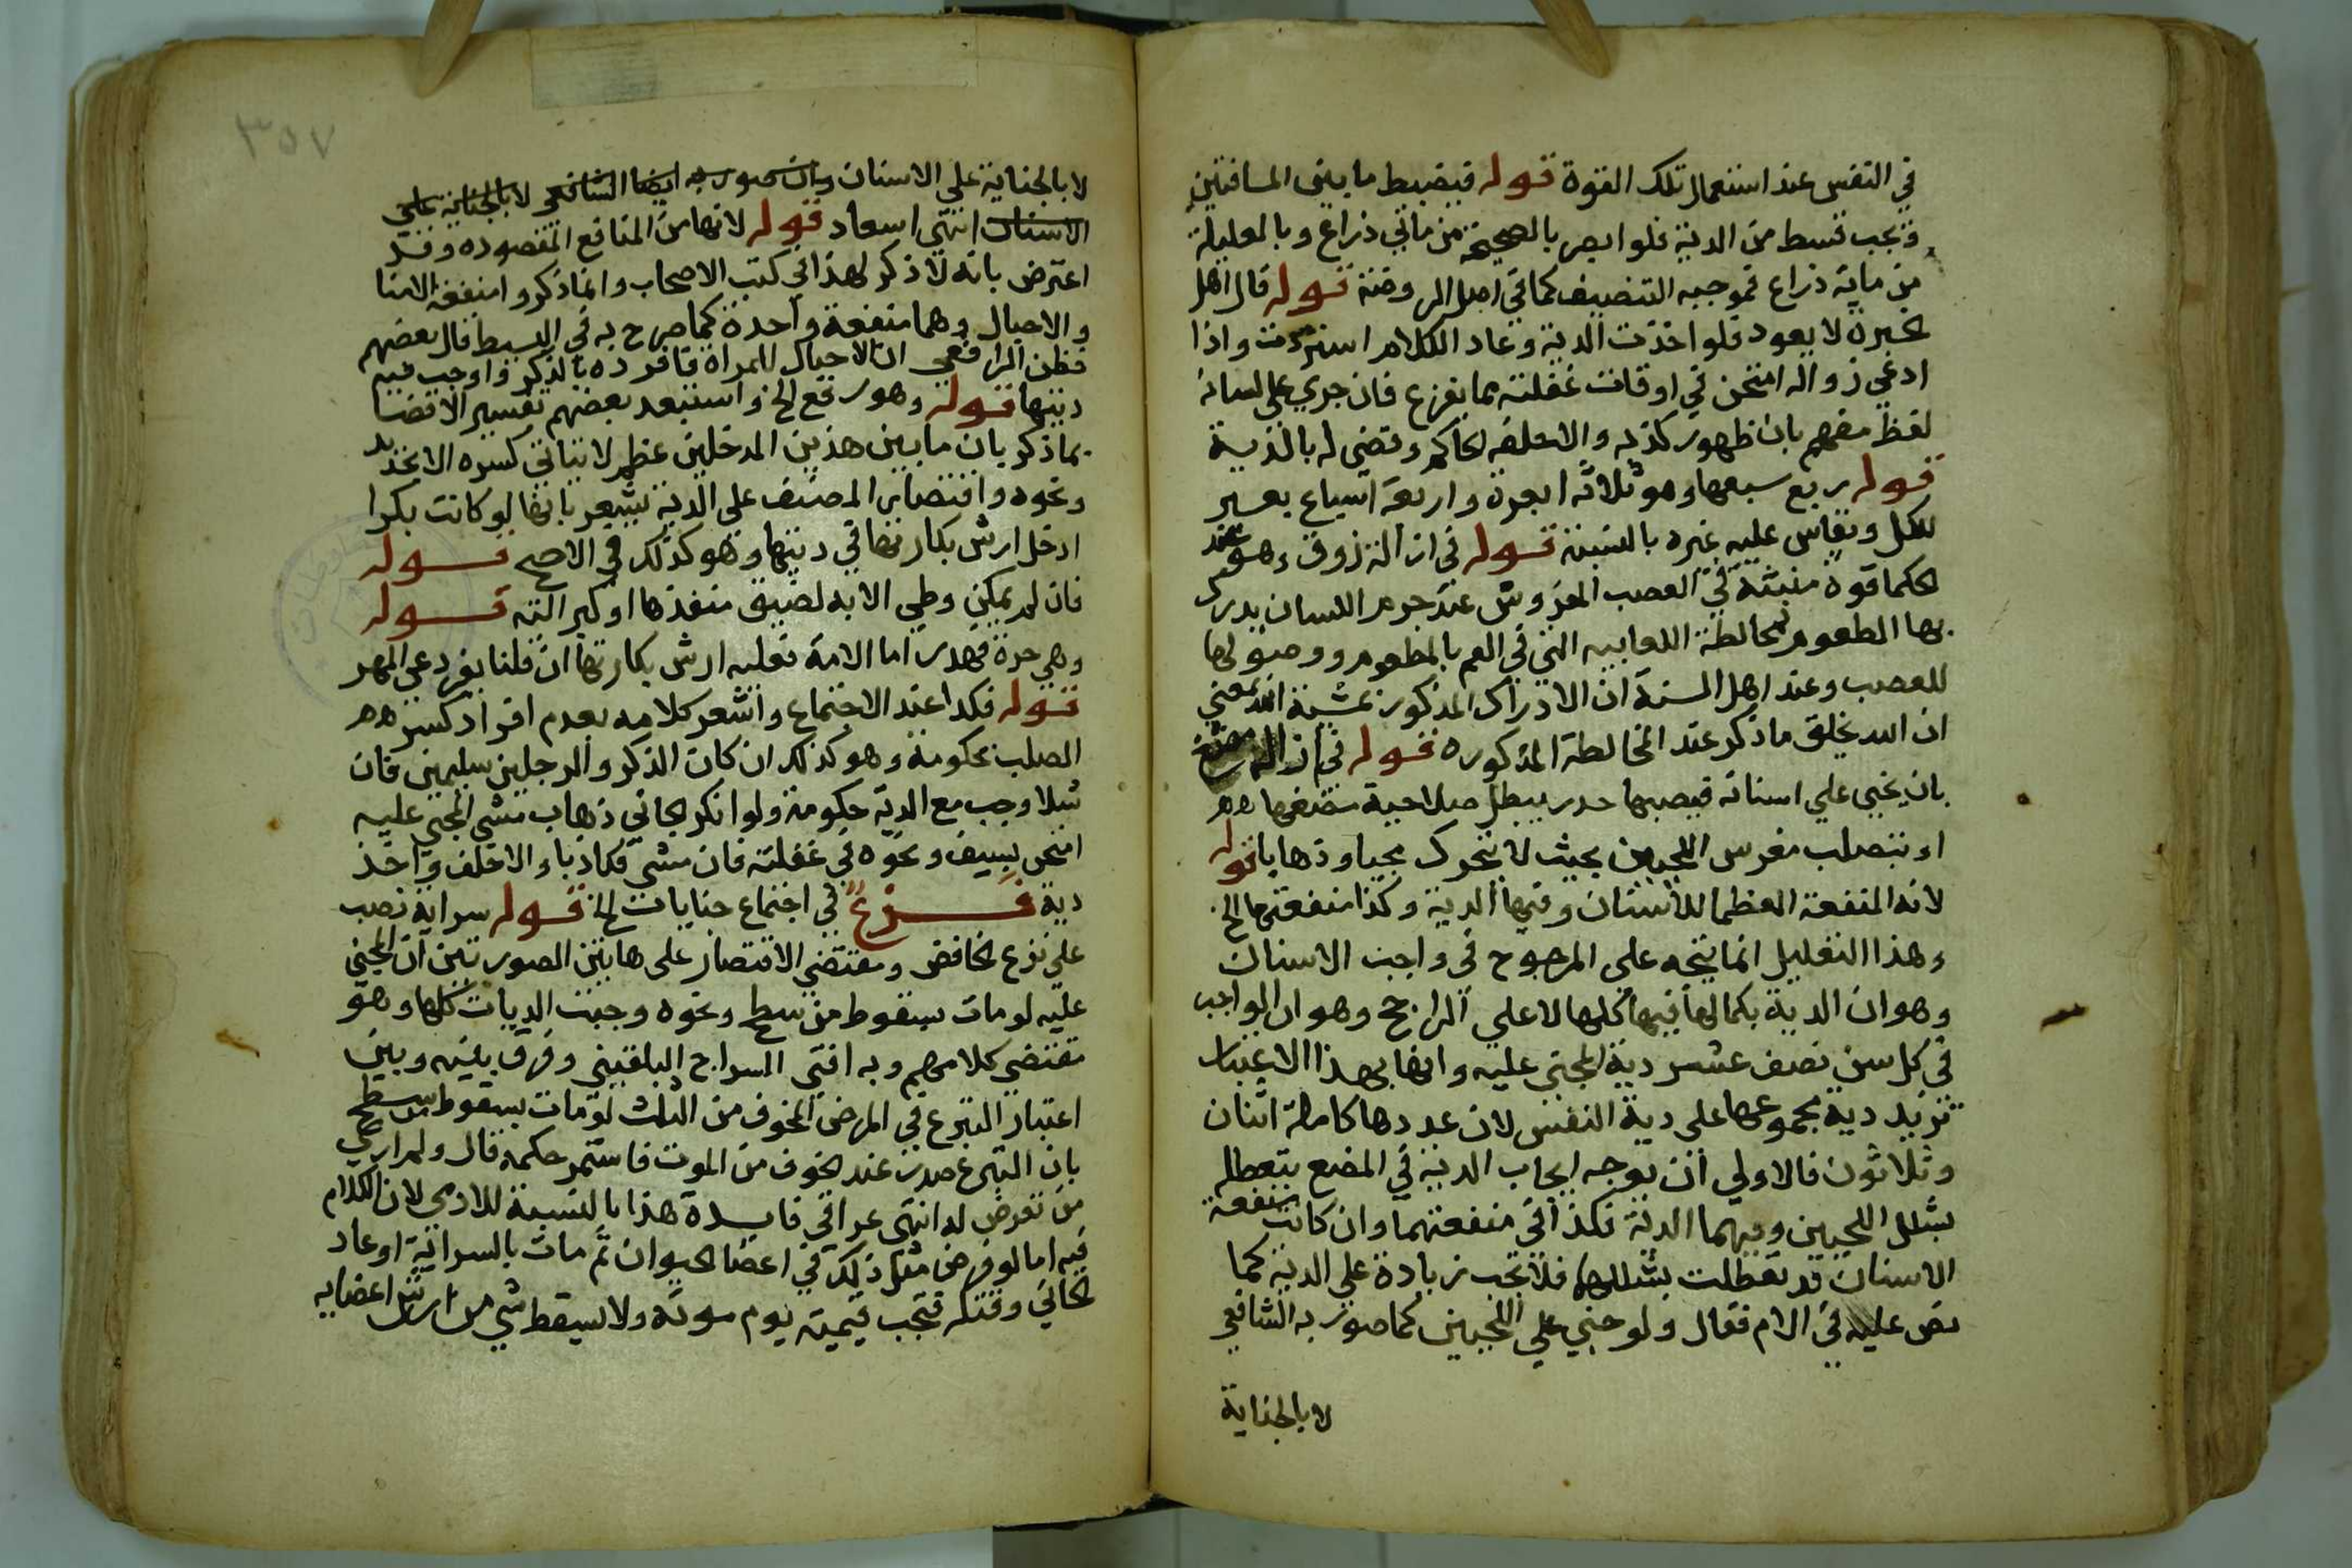 في النفس عند استعمال تلك القوة قوله فيضبط ما بين المسافتين
وتجب قسط من الدية فلو ابصر بالصحيحة من مايتي ذراع وبالعليلة
من ماية ذراع فموجبه التنصيف كما في اصل الروضة قوله قال اهل
الخبرة لا يعود فلو اخذت الدية وعاد الكلام استردت واذا
ادعي زواله امتحن في اوقات غفلته بما يفزع فان جري علي لسانه
لفظ مفهم بان ظهور كذبه والا حلفه الحاكم وقضي له بالدية
قوله ربع سبعها وهو ثلاثة ابعرة واربعة اسباع بعير
للكل ويقاس عليه غيره بالنسبة قوله في ازالة ذوق وهو عند
الحكما قوة منبثة في العصب المفروش عند جرم اللسان يدرك
بها الطعوم لمخالطة اللعابيه التي في الفم بالمطعوم ووصولها
للعصب وعند اهل السنة ان الادراك المذكور بمشية الله يعني
ان الله يخلق ما ذكر عند المخالطة المذكوره قوله في ازالة مضغ
بان يجني علي اسنانه فيصيبها خدر يبطل صلاحية مضغها
او يتصلب مغرس اللحيين بحيث لا يتحرك مجيا وذهابا قوله
لانه المنفعة العظما للاسنان وفيها الدية وكذا منفعتها الخ
وهذا التعليل انما يتجه علي المرجوح في واجب الاسنان
وهو ان الدية بكمالها فيها كلها لا علي الراجح وهو ان الواجب
في كل سن نصف عشر دية المجني عليه وانها بهذا الاعتبار
تزيد دية مجموعها علي دية النفس لان عددها كاملة اثنان
وثلاثون فالاولي ان يوجه ايجاب الدية في المضغ بتعطله
بشلل اللحيين وفيهما الدية فكذا في منفعتهما وان كانت منفعة
الاسنان قد تعطلت بشللها فلا تجب زيادة علي الدية كما
نص عليه في الام فقال ولو جني علي اللحيين كما صور به الشافعي
لا بالجناية
٣٥٧
لا بالجناية علي الاسنان وان صور به ايضا الشافعي لا بالجناية علي
الاسنان انتهي اسعاد قوله لانها من المنافع المقصوده وقد
اعترض بانه لا ذكر لهذا في كتب الاصحاب وانما ذكروا منفعة الامنا
والاحبال وهما منفعة واحدة كما صرح به في البسيط قال بعضهم
فظن الرافعي ان الاحبال للمراة فافرده بالذكر واوجب فيه
ديتها قوله وهو رفع الخ واستبعد بعضهم تفسير الافضا
بما ذكر بان ما بين هذين المدخلين عظم لا يتاتي كسره الا بحديد
ونحوه واقتصار المصنف علي الدية يشعر بانها لو كانت بكرا
ادخل ارش بكارتها في ديتها وهو كذلك في الاصح قوله
فان لم يمكن وطي الا به لضيق منفذها او كبر الته قوله
وهي حرة فهدر اما الامة فعليه ارش بكارتها ان قلنا يفرد عن المهر
قوله فكذا عند الاجتماع واشعر كلامه بعدم افراد كسر
الصلب بحكومة وهو كذلك ان كان الذكر والرجلين سليمين فان
شلا وجب مع الدية حكومة ولو انكر الجاني ذهاب مشي المجني عليه
امتحن بسيف ونحوه في غفلته فان مشي فكاذبا والا حلف واخذ
دية فرع في اجتماع جنايات الخ قوله سراية نصب
علي نزع الخافض ومقتضي الاقتصار علي هاتين الصورتين ان المجني
عليه لو مات بسقوط من سطح ونحوه وجبت الديات كلها وهو
مقتضي كلامهم وبه افتي السراج البلقيني وفرق بينه وبين
اعتبار التبرع في المرض المخوف من الثلث لو مات بسقوط من سطح
بان التبرع صدر عند الخوف من الموت فاستمر حكمه قال ولم ار في
من تعرض له انتهي عراقي فايدة هذا بالنسبة للادمي لان الكلام
فيه اما لو فرض مثل ذلك في اعضا الحيوان ثم مات بالسراية او عاد
الجاني وقتله فتجب قيمته يوم موته ولا يسقط شي من ارش اعضايه